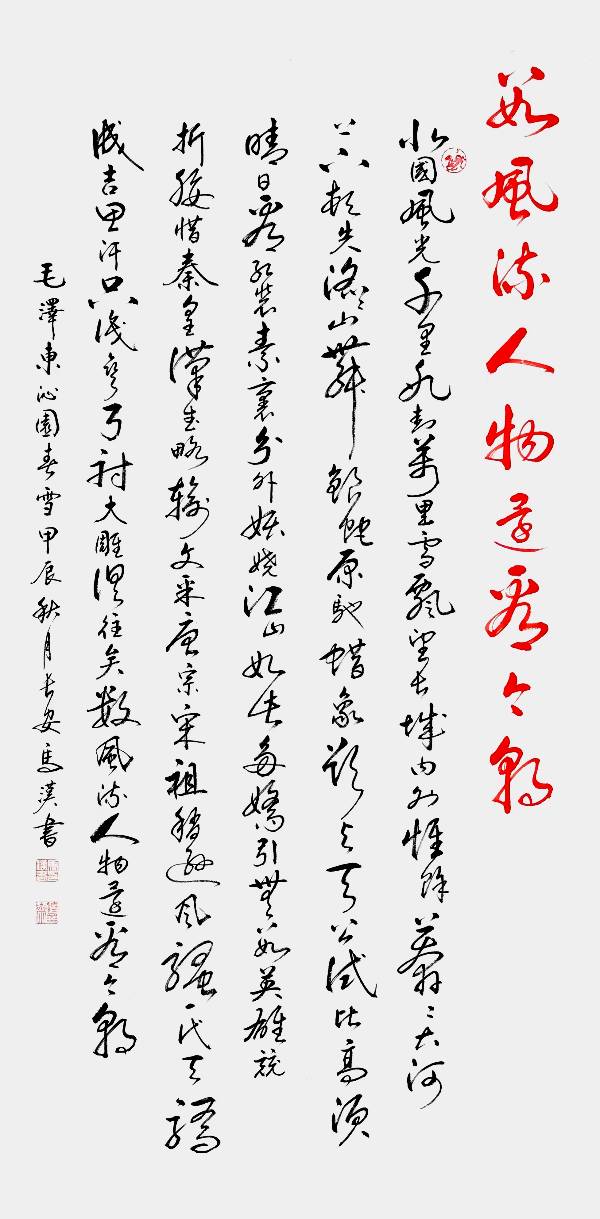 數風流人物還看今朝
北國風光千里冰封萬里雪飄望長城內外惟餘莽〻大河
上下頓失滔〻山舞銀蛇原馳蜡象欲與天公試比高須
晴日看紅裝素裹分外妖嬈江山如此多嬌引無數英雄競
折腰惜秦皇漢武略輸文采唐宗宋祖稍遜風騷一代天驕
成吉思汗只識彎弓射大雕俱往矣數風流人物還看今朝
毛澤東沁園春雪甲辰秋月長安馬漢書